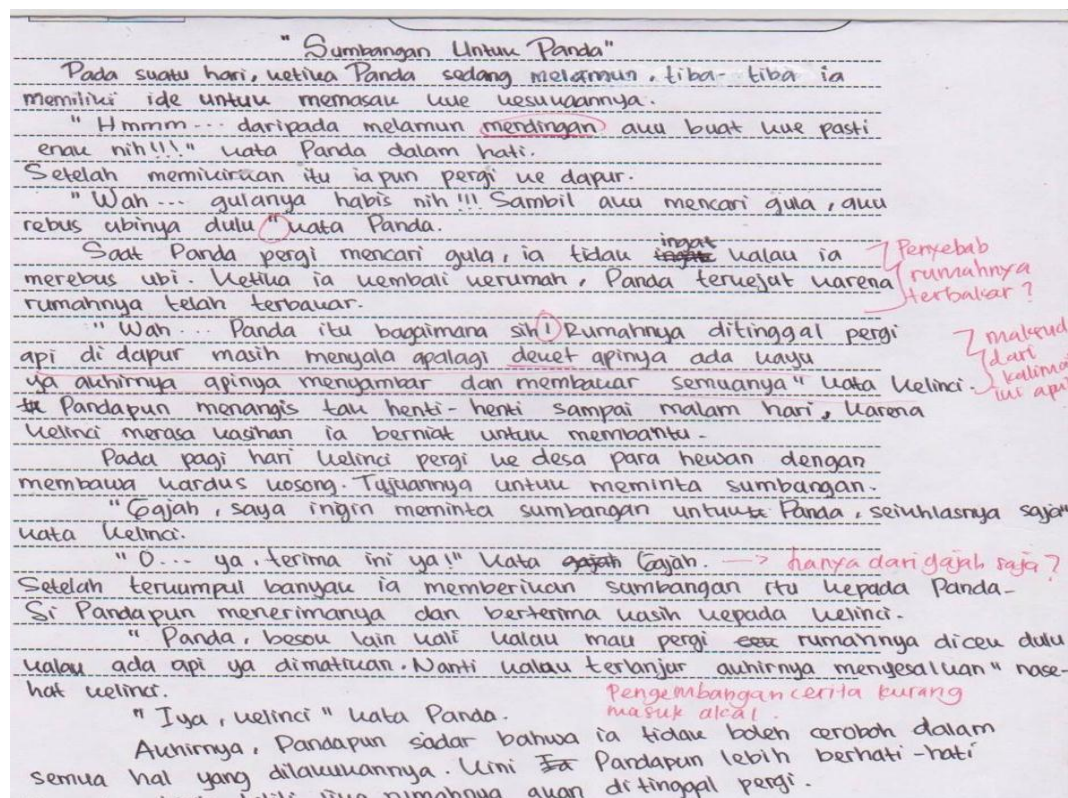 "Sumbangan Untuk Panda"
Pada suatu hari, ketika Panda sedang melamun, tiba-tiba ia
memiliki ide untuk memasak kue kesukaannya.
"Hmmm... daripada melamun merdingan aku buat kue pasti
enak nih!!!" kata Panda dalam hati.
Setelah memikirkan itu iapun pergi ke dapur.
"Wah... gulanya habis nih!!! Sambil aku mencari gula, aku
rebus ubinya dulu" kata Panda.
Saat Panda pergi mencari gula, ia tidak ingat kalau ia
merebus ubi. Ketika ia kembali kerumah, Panda terkejut karena
rumahnya telah terbakar.
Penyebab
rumahnya
terbakar?
"Wah... Panda itu bagaimana sih! Rumahnya ditinggal pergi
api di dapur masih menyala apalagi deket apinya ada kayu
ya akhirnya apinya menyambar dan membakar semuanya" kata Kelinci.
maksud
dari
kalimat
ini apa?
Pandapun menangis tak henti-henti sampai malam hari, karena
kelinci merasa kasihan ia berniat untuk membantu.
Pada pagi hari kelinci pergi ke desa para hewan dengan
membawa kardus kosong. Tujuannya untuk meminta sumbangan.
"Gajah, saya inigin meminta sumbangan untuk Panda, seikhlasnya saja"
kata Kelinci.
"O... ya, terima ini ya!" kata Gajah. → hanya dari gajah saja?
Setelah terkumpul banyak ia memberikan sumbangan itu kepada Panda.
Si Pandapun menerimanya dan berterima kasih kepada kelinci.
"Panda, besok lain kali kalau mau pergi rumahnya dicek dulu
kalau ada api ya dimatikan. Nanti kalau terlanjur akhirnya menyesalkan" nase-
hat kelinci.
Pengembangan cerita kurang
masuk akal.
"Iya, kelinci" kata Panda.
Akhirnya, Pandapun sadar bahwa ia tidak boleh ceroboh dalam
semua hal yang dilakukannya. Kini Pandapun lebih berhati-hati
rumahnya akan ditinggal pergi.